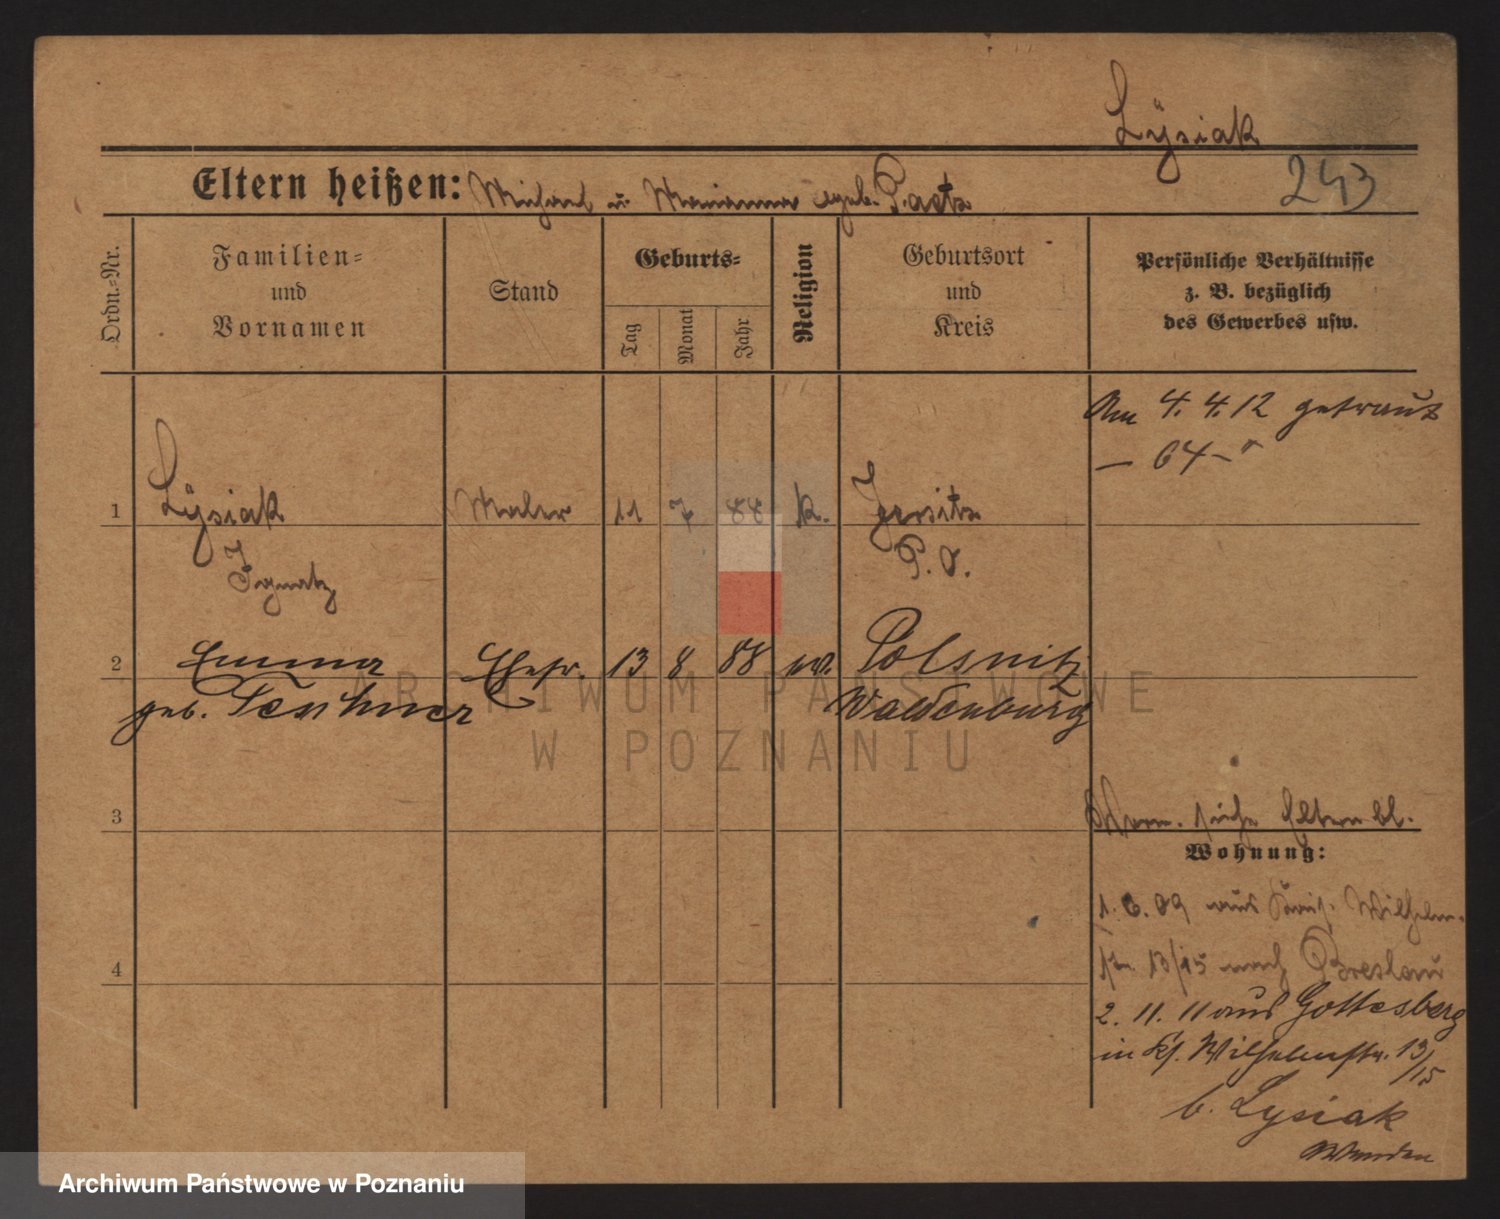 Lÿsiak
243
Eltern heißen: Michael u. Marianna geb. Paetz
Ordn.-Nr.
Familien-
und
Vornamen
Stand
Geburts-
Tag
Monat
Jahr
Religion
Geburtsort
und
Kreis
Persönliche Verhältnisse
z. B. bezüglich
des Gewerbes usw.
Am 4. 4. 12 getraut
— 64 —
1 Lÿsiak Maler 11 7 88 k. Jersitz
Ignatz P. O.
2 Emma Ehefr. 13 8 88 w. Polsnitz
geb. Teschner Waldenburg
3
4
Verm. siehe Elternbl.
Wohnung:
1. 6. 09 aus Wilhelm-
str. 13/15 nach Breslau
2. 11. 11 aus Gottesberg
in Wilhelmstr. 13/15
b. Lysiak
Wenden
ARCHIWUM PAŃSTWOWE
W POZNANIU
Archiwum Państwowe w Poznaniu